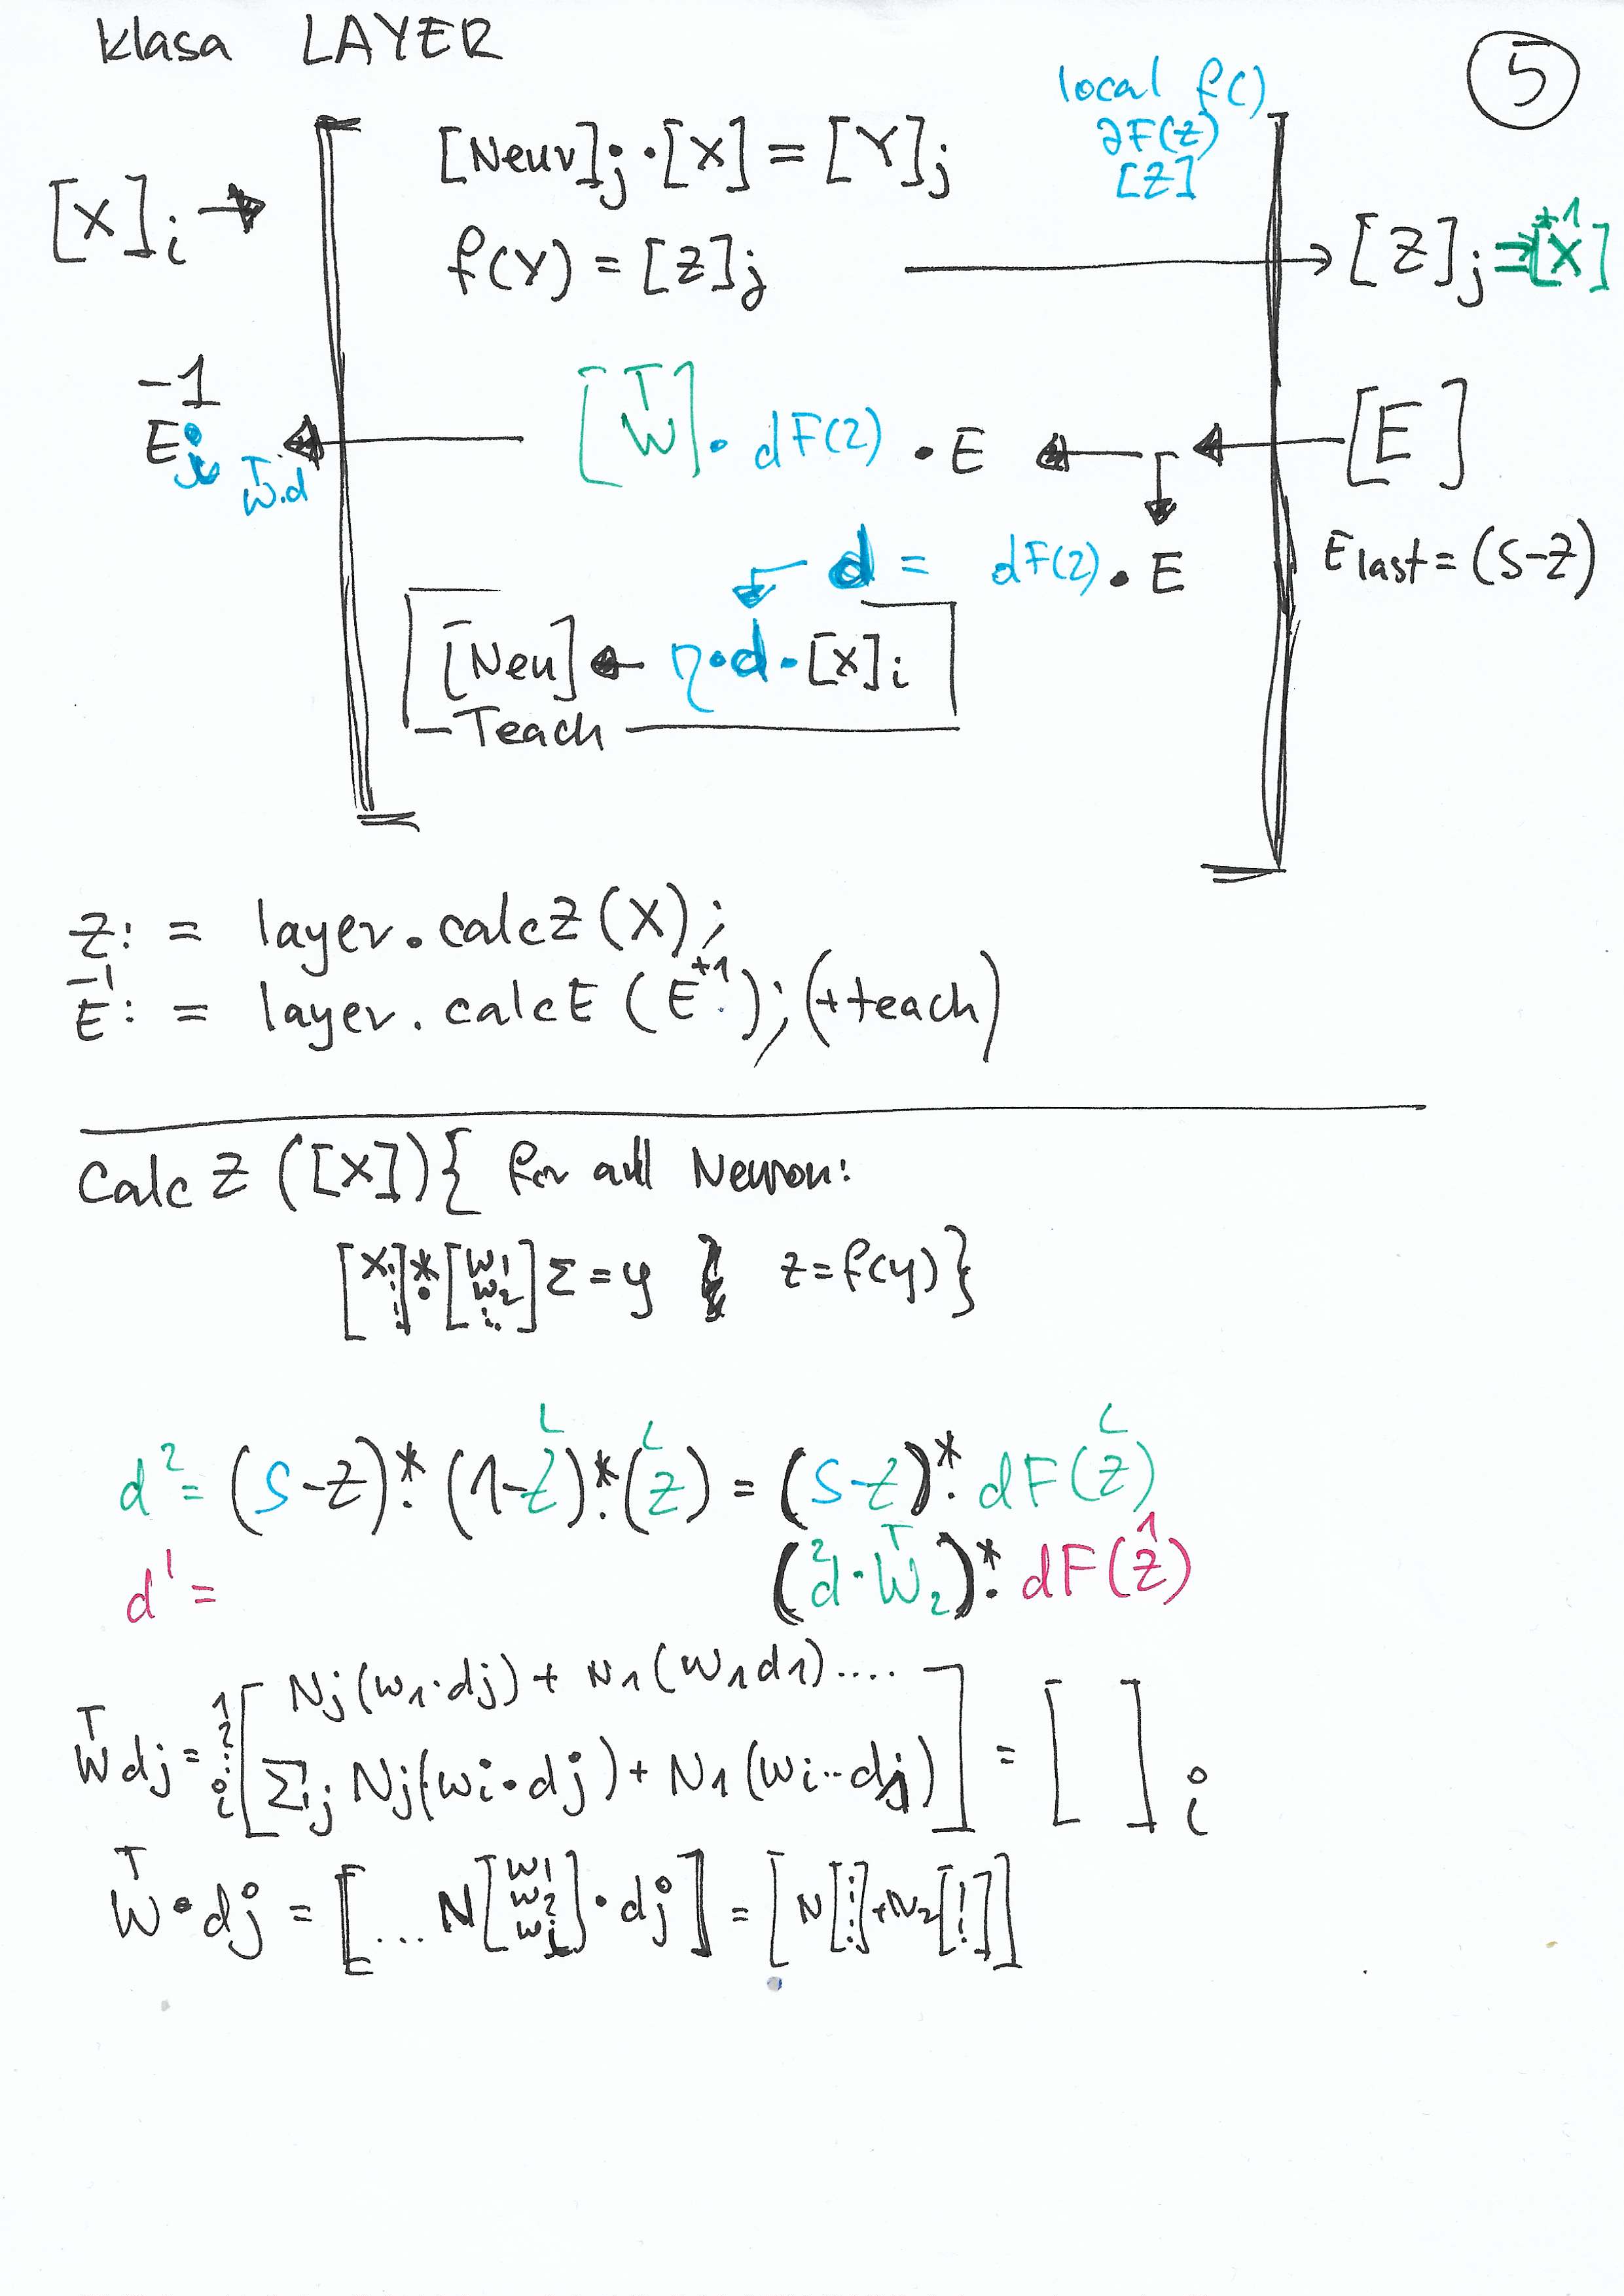 klasa LAYER
5
local f()
∂F(z)
[Z]
[Neur]j · [X] = [Y]j
[X]i →
f(Y) = [Z]j → [Z]j = [X]⁺¹
E⁻¹i ← [Wᵀ] · dF(z) · E ← [E]
Wᵀ.d
d = dF(z) · E
E last = (S-Z)
[Neu] ← η·d·[X]i
Teach
Z: = layer.calcZ(X);
E⁻¹: = layer.calcE(E⁺¹); (+teach)
Calc Z ([X]){ for all Neuron:
[X i] .* [W1 W2 i..] Σ = y z=f(y)}
d² = (S-Z).*(1-Zᴸ).*(Zᴸ) = (S-Z).* dF(Zᴸ)
d¹ = (d² · Wᵀ₂).* dF(Z¹)
Wᵀdj = 1 2 : i [ Nj(w1·dj) + N1(w1d1)....
Σj Nj(wi·dj) + N1(wi··dj) ] = [ ] i
Wᵀ·dj = [... N[w1 w2 wi]·dj] = [N[⋮]+N2[⋮]]